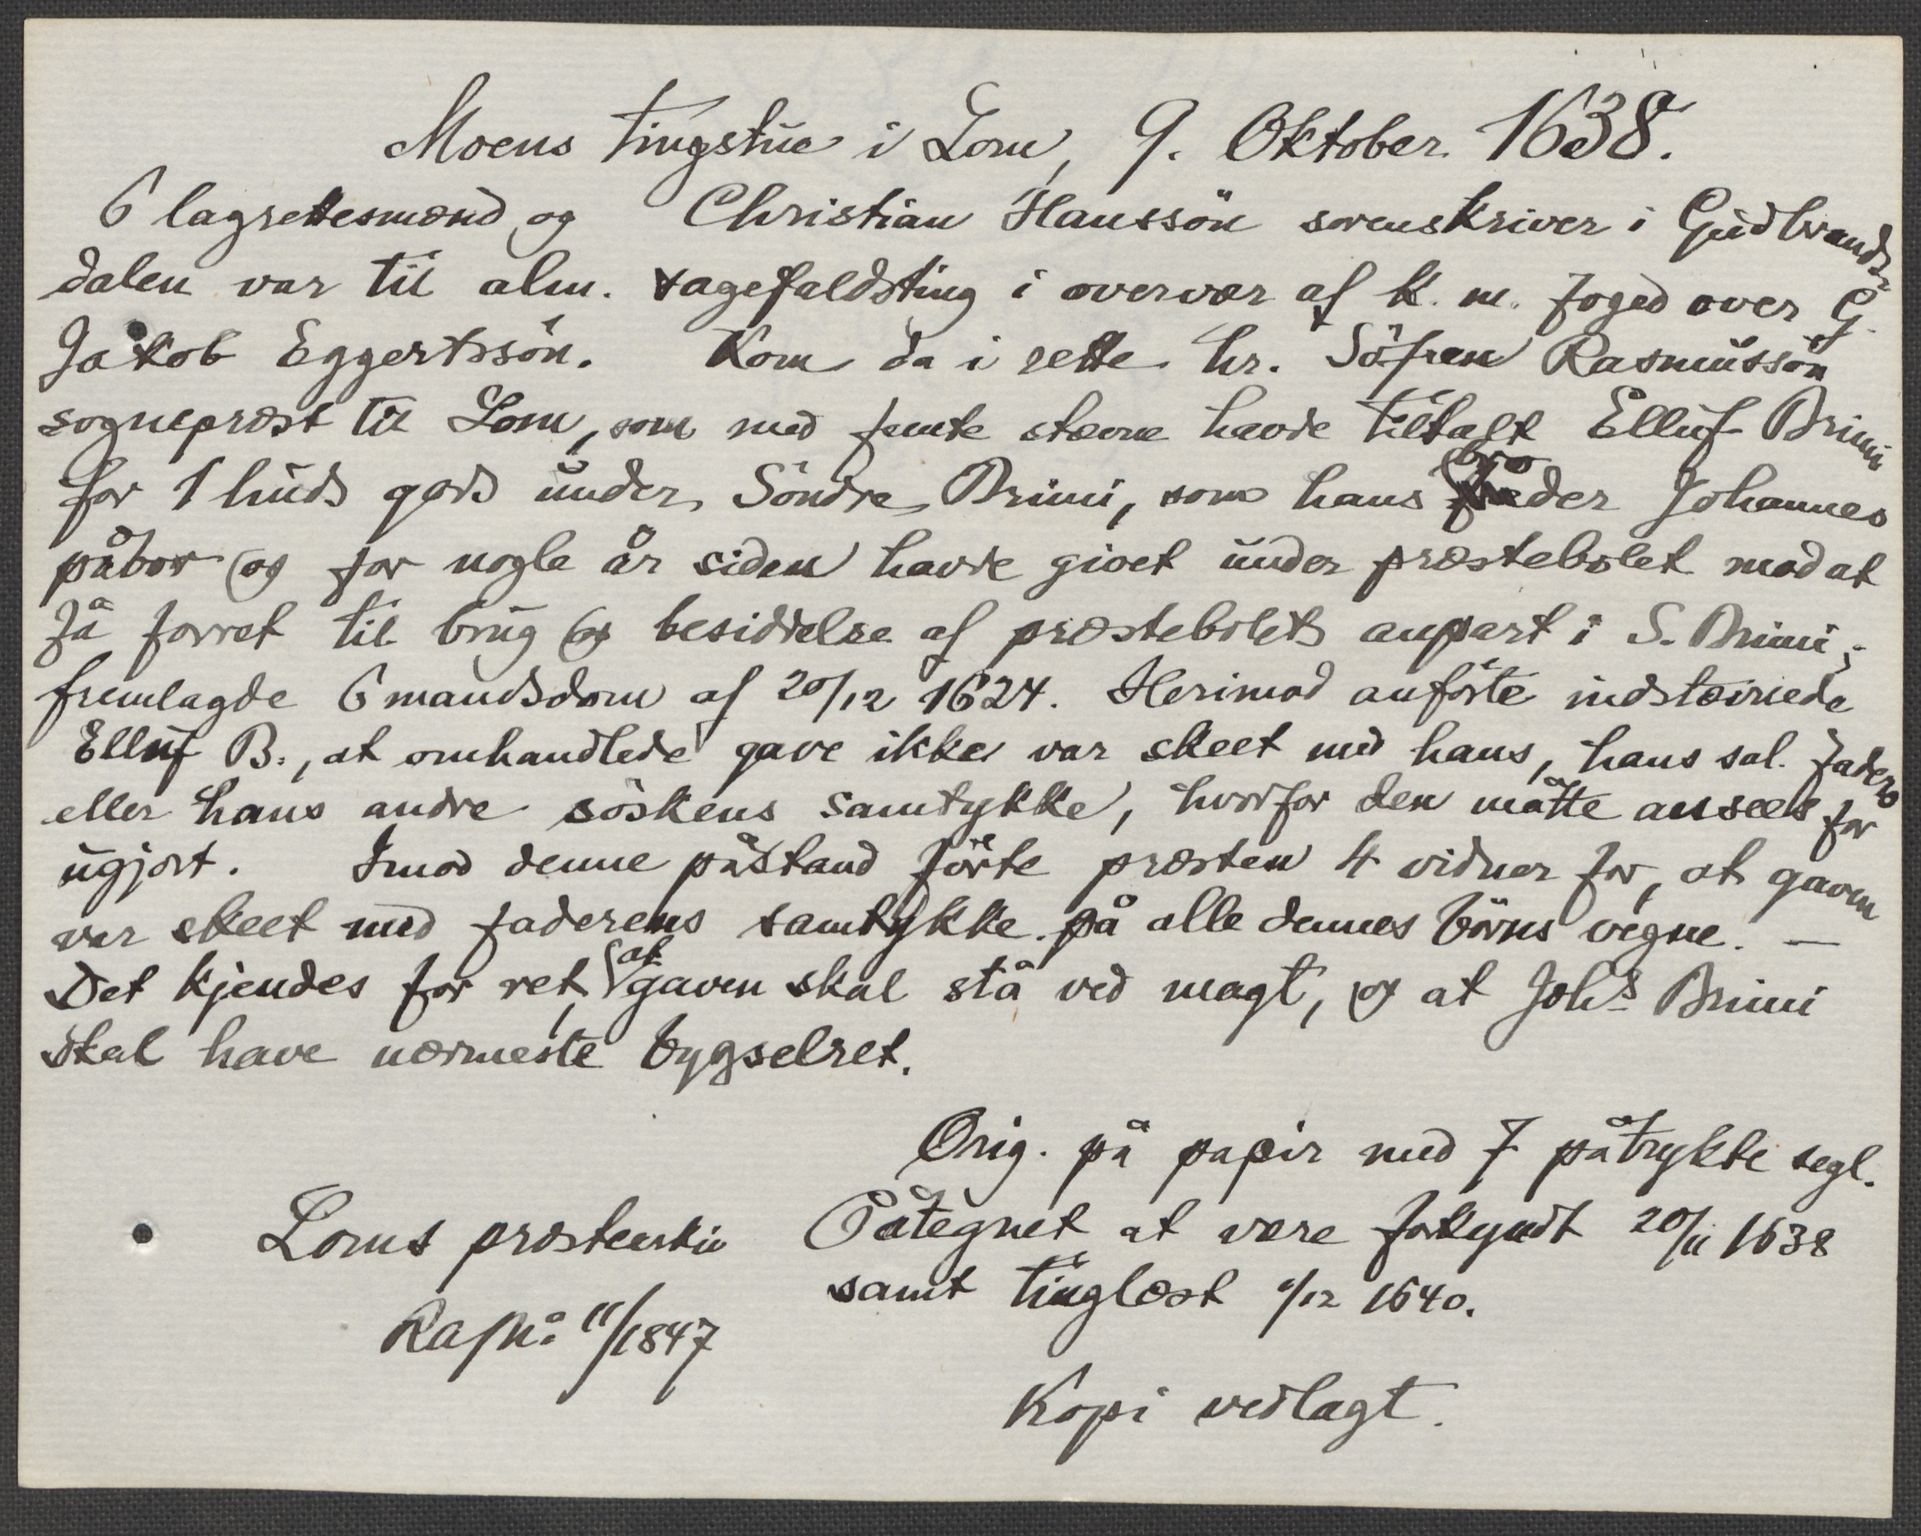 Moens tingstue i Lom, 9. Oktober 1638.
6 lagrettesmænd og Christian Hanssön sorenskriver i Gudbrands-
dalen var til alm. sagefaldsting i overvær af k. m. foged over G.
Jakob Eggertssön. Kom da i rette hr. Söfren Rasmussön
sogneprest til Lom, som med femte stævne havde tiltalt Elluf Brimi
for 1 huds gods under Söndre Brimi, som hans broder Johannes
påbor og for nogle år siden havde givet under præstebolet mod at
få forret til brug og besiddelse af præstebolets anpart i S. Brimi;
fremlagde 6 mandsdom af 20/12 1624. Herimod anförte indstævnede
Elluf B., at omhandlede gave ikke var skeet med hans, hans sal. faders
eller hans andre söskens samtykke, hvorfor den måtte ansees for
ugjort. Imod denne påstand förte præsten 4 vidner for, at gaven
var skeet med faderens samtykke på alle dennes börns vegne. —
Det kjendes for ret, at gaven skal stå ved magt, og at Johs Brimi
skal have nærmeste bygselret.
Orig. på papir med 7 påtrykte segl.
Påtegnet at være forkyndt 20/11 1638
samt tinglæst /12 1640.
Loms præstearkiv
Kopi vedlagt.